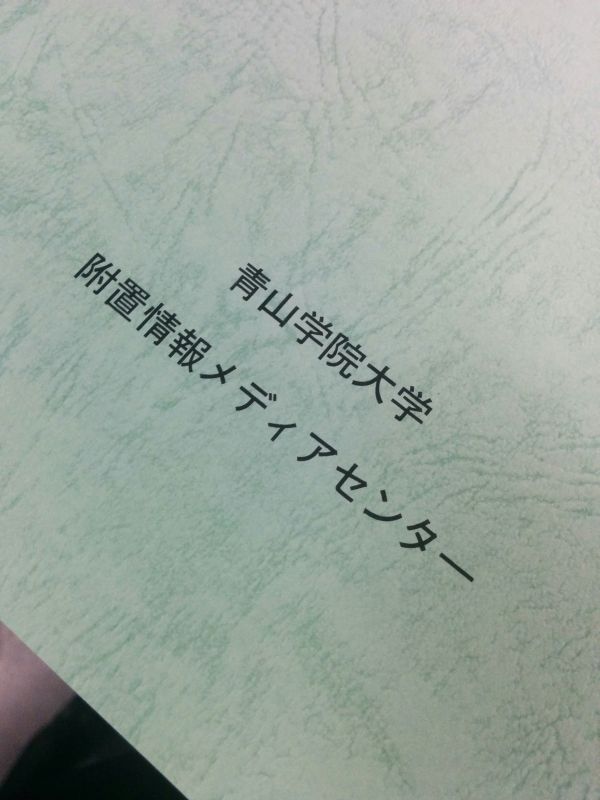 青山学院大学
附置情報メディアセンター